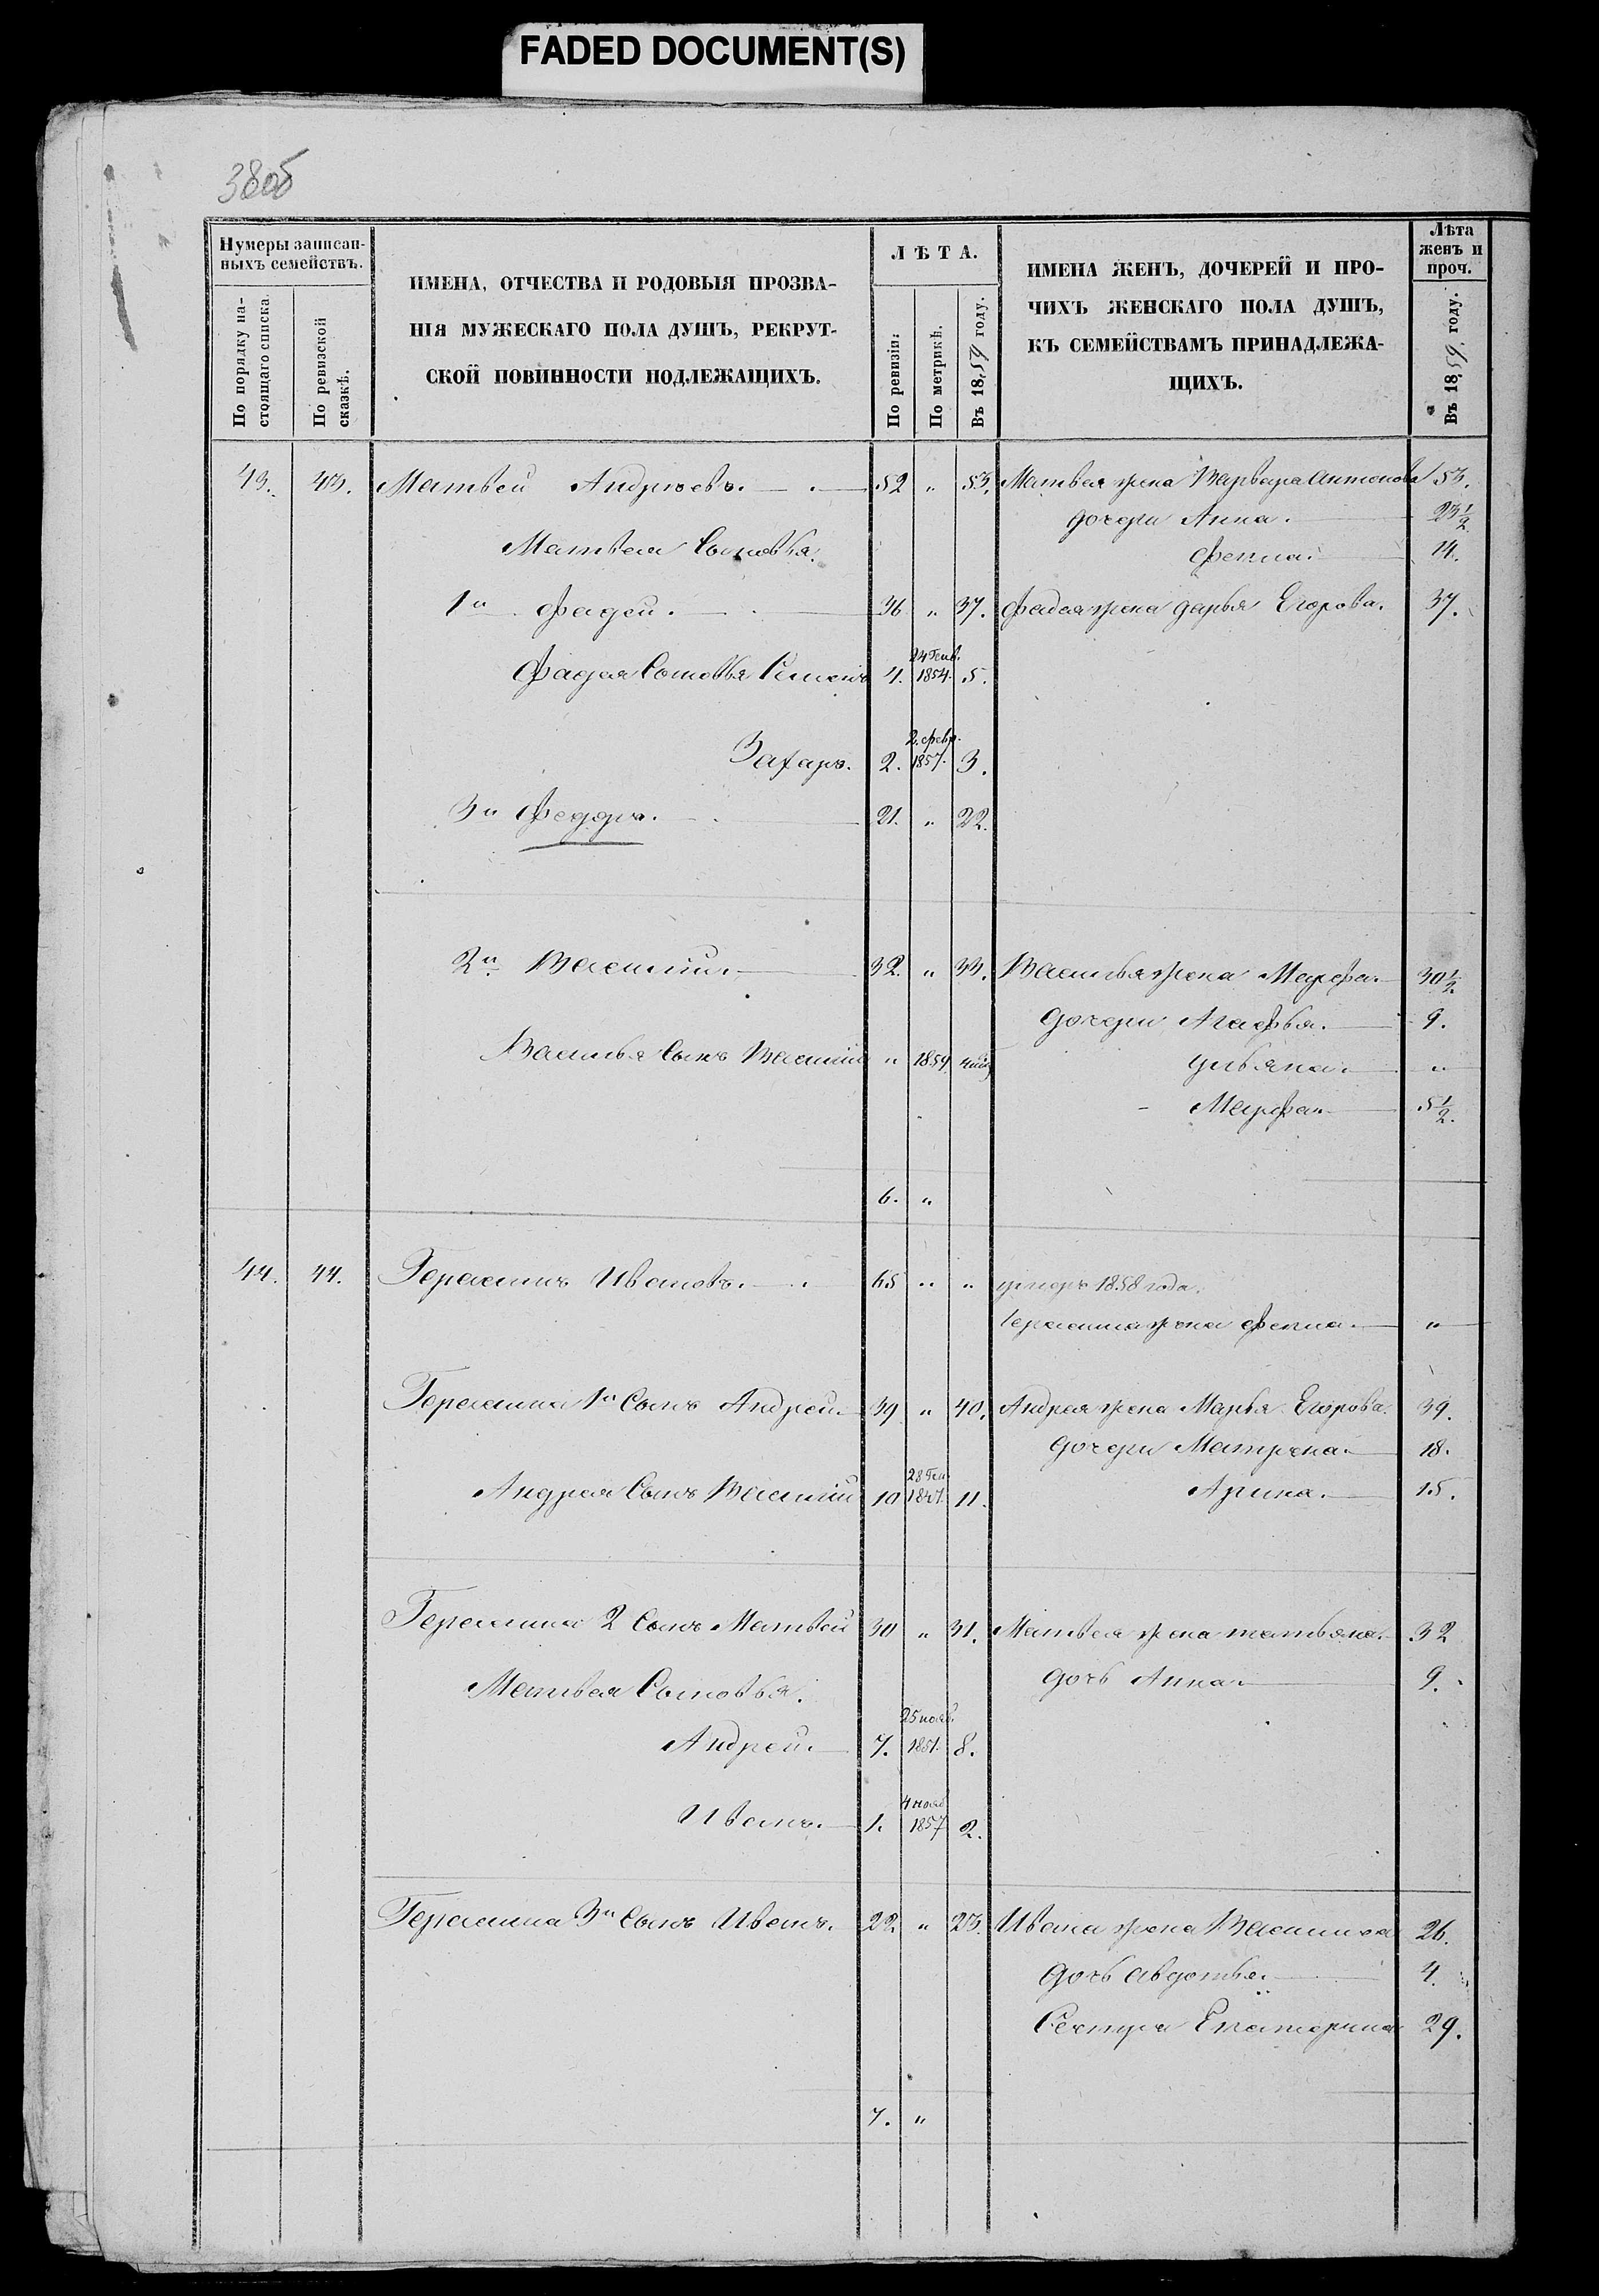 FADED DOCUMENT(S)
38об
Нумеры записан-
ныхъ семействъ.
По порядку на-
стоящаго списка.
По ревизской
сказкѣ.
ИМЕНА, ОТЧЕСТВА И РОДОВЫЯ ПРОЗВА-
НІЯ МУЖЕСКАГО ПОЛА ДУШЪ, РЕКРУТ-
СКОЙ ПОВИННОСТИ ПОДЛЕЖАЩИХЪ.
ЛѢТА.
По ревизіи:
По метрикѣ.
Въ 1859 году.
ИМЕНА ЖЕНЪ, ДОЧЕРЕЙ И ПРО-
ЧИХЪ ЖЕНСКАГО ПОЛА ДУШЪ,
КЪ СЕМЕЙСТВАМЪ ПРИНАДЛЕЖА-
ЩИХЪ.
Лѣта
женъ и
проч.
Въ 1859. году.
43. 43. Матвей Андреевъ. 52 " 53. Матвея жена Варвара Антонова 53.
дочери Анна. 23½
Матвея Сыновья. Фекла. 14.
1й Фадей. 36 " 37. Фадея жена дарья Егорова. 37.
24 Генв.
Фадея Сыновья Семенъ 4. 1854. 5.
2. февр.
Захаръ. 2. 1857. 3.
3й Федоръ. 21. " 22.
2й Василий. 32. " 33. Василья жена Марфа. 30½
дочери Агафья. 9.
Василья Сынъ Василий " 1859 ульяна. "
Марфа. 5½.
6. "
44. 44. Герасимъ Ивановъ. 65 " " умеръ 1858 года.
Герасима жена Фекла. "
Герасима 1й Сынъ Андрей. 39 " 40. Андрея жена Марья Егорова. 39.
дочери Матрена. 18.
28 Ген
Андрея Сынъ Василий 10 1847. 11. Арина. 15.
Герасима 2 Сынъ Матвей 30 " 31. Матвея жена татьяна. 32
Матвея Сыновья. дочь Анна. 9.
25 нояб.
Андрей. 7. 1851. 8.
4 нояб
Иванъ. 1. 1857 2.
Герасима 3й Сынъ Иванъ. 22. " 23. Ивана жена Василиса 26.
дочь авдотья. 4.
Сестра Екатерина 29.
7. "